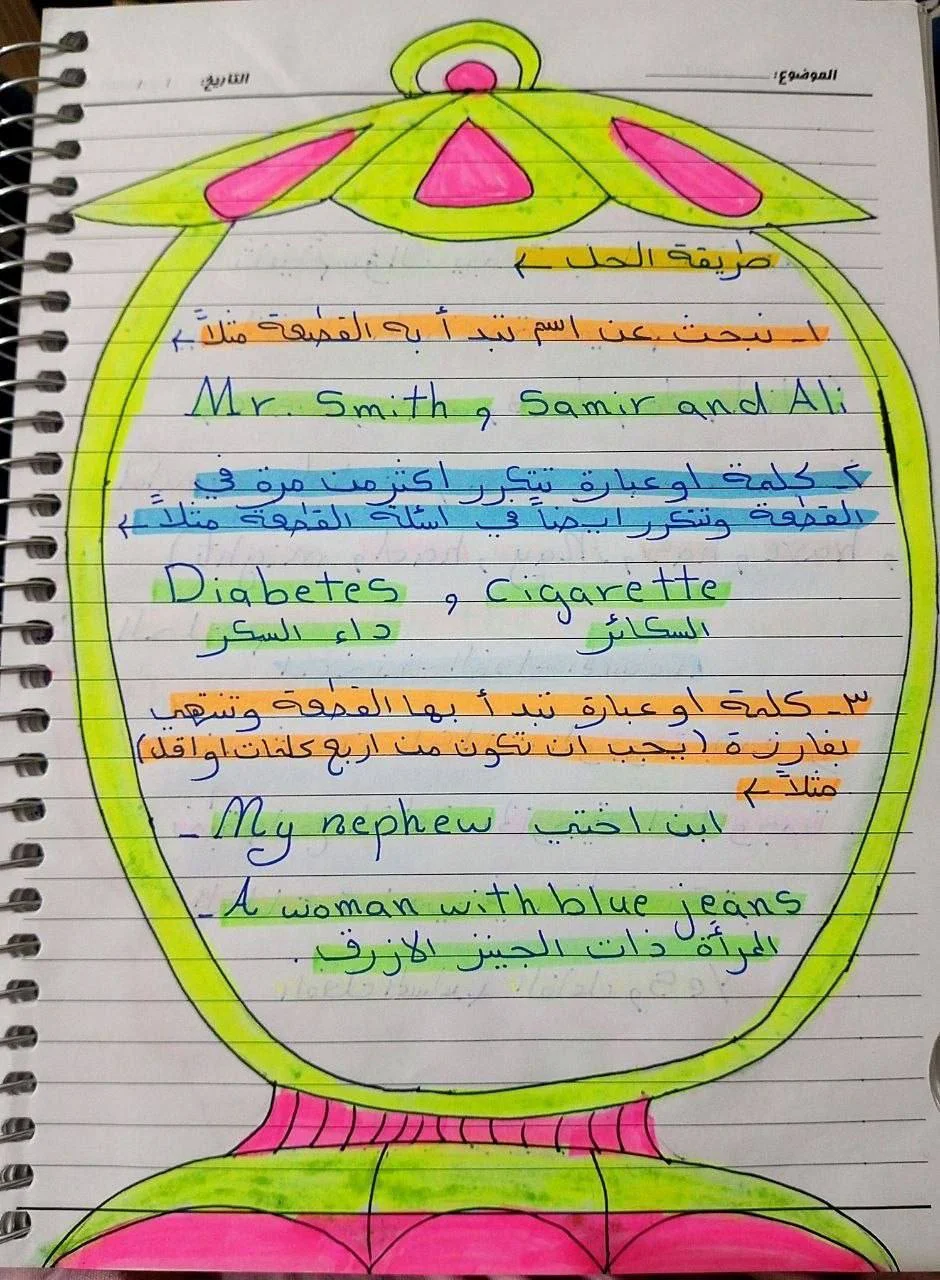 الموضوع: التاريخ: / /
طريقة الحل ←
١- نبحث عن اسم تبدأ به القطعة مثلاً ←
Mr. Smith و Samir and Ali
٢- كلمة او عبارة تتكرر اكثر من مرة في
القطعة وتتكرر ايضاً في اسئلة القطعة مثلاً ←
Diabetes و Cigarette
السكائر داء السكر
٣- كلمة او عبارة تبدأ بها القطعة وتنتهي
بفارزة (يجب ان تكون من اربع كلمات او اقل)
مثلاً ←
- My nephew ابن اختي
- A woman with blue jeans
المرأة ذات الجينز الازرق .